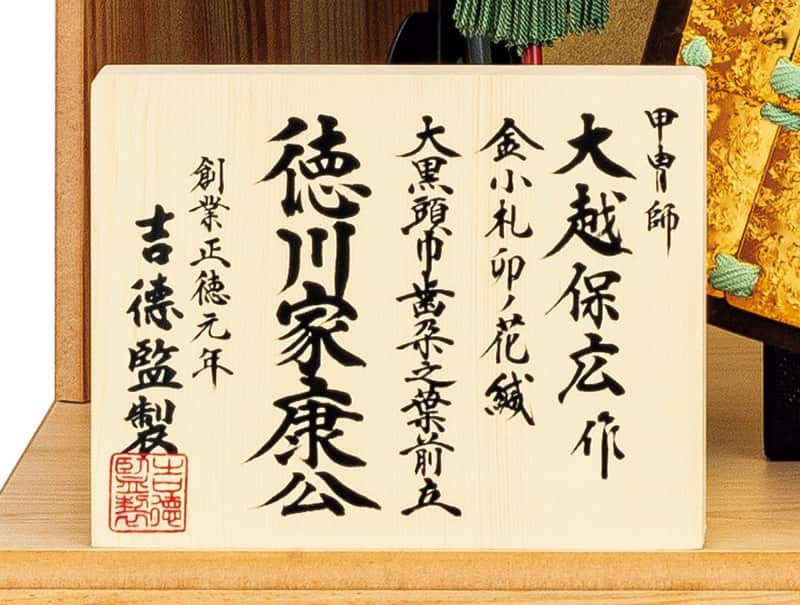 甲冑師
大越保広作
金小札卯ノ花縅
大黒頭巾歯朶之葉前立
徳川家康公
創業正徳元年
吉徳監製
吉徳監製